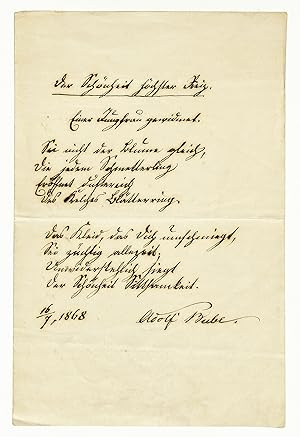 Der Schönheit höchster Reiz.
Einer Jungfrau gewidmet.
Sei nicht der Blume gleich,
Die jedem Schmetterling
Eröffnet duftereich
Des Kelches Blätterring.
Das Kleid, das Dich umschmiegt,
Sei züchtig allezeit;
Unwiderstehlich siegt
Der Schönheit Sittsamkeit.
16/1, 1868 Adolf Bube.